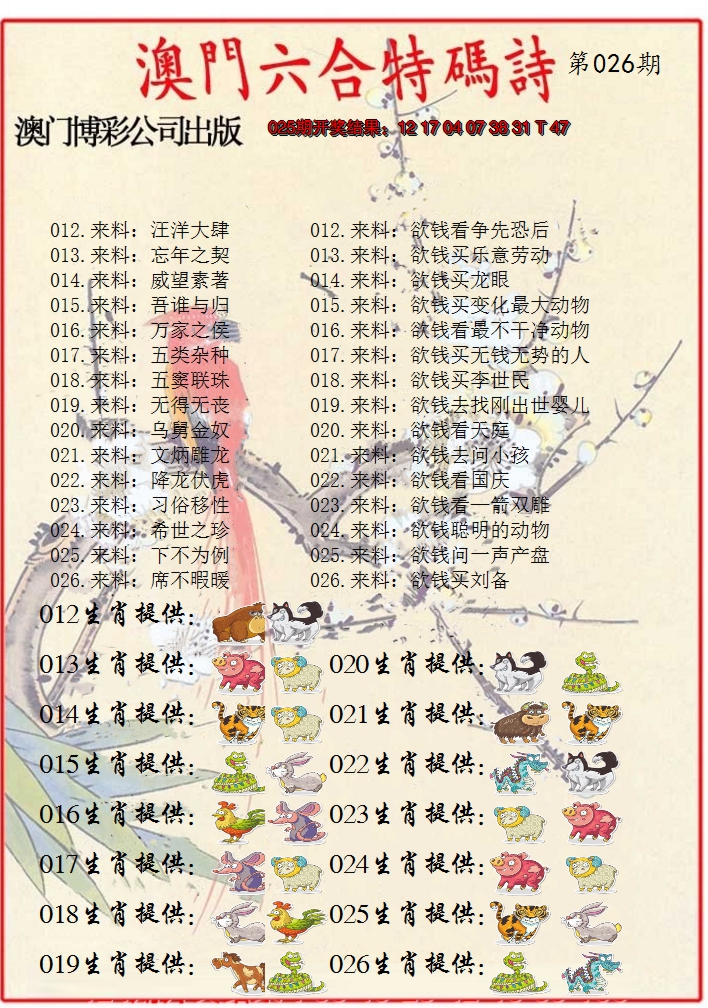 澳門六合特碼詩 第026期
澳门博彩公司出版 025期开奖结果：12 17 04 07 38 31 T 47
012.来料：汪洋大肆 012.来料：欲钱看争先恐后
013.来料：忘年之契 013.来料：欲钱买乐意劳动
014.来料：威望素著 014.来料：欲钱买龙眼
015.来料：吾谁与归 015.来料：欲钱买变化最大动物
016.来料：万家之侯 016.来料：欲钱看最不干净动物
017.来料：五类杂种 017.来料：欲钱买无钱无势的人
018.来料：五窦联珠 018.来料：欲钱买李世民
019.来料：无得无丧 019.来料：欲钱去找刚出世婴儿
020.来料：乌舅金奴 020.来料：欲钱看天庭
021.来料：文炳雕龙 021.来料：欲钱去问小孩
022.来料：降龙伏虎 022.来料：欲钱看国庆
023.来料：习俗移性 023.来料：欲钱看一箭双雕
024.来料：希世之珍 024.来料：欲钱聪明的动物
025.来料：下不为例 025.来料：欲钱问一声产盘
026.来料：席不暇暖 026.来料：欲钱买刘备
012生肖提供：
013生肖提供： 020生肖提供：
014生肖提供： 021生肖提供：
015生肖提供： 022生肖提供：
016生肖提供： 023生肖提供：
017生肖提供： 024生肖提供：
018生肖提供： 025生肖提供：
019生肖提供： 026生肖提供：